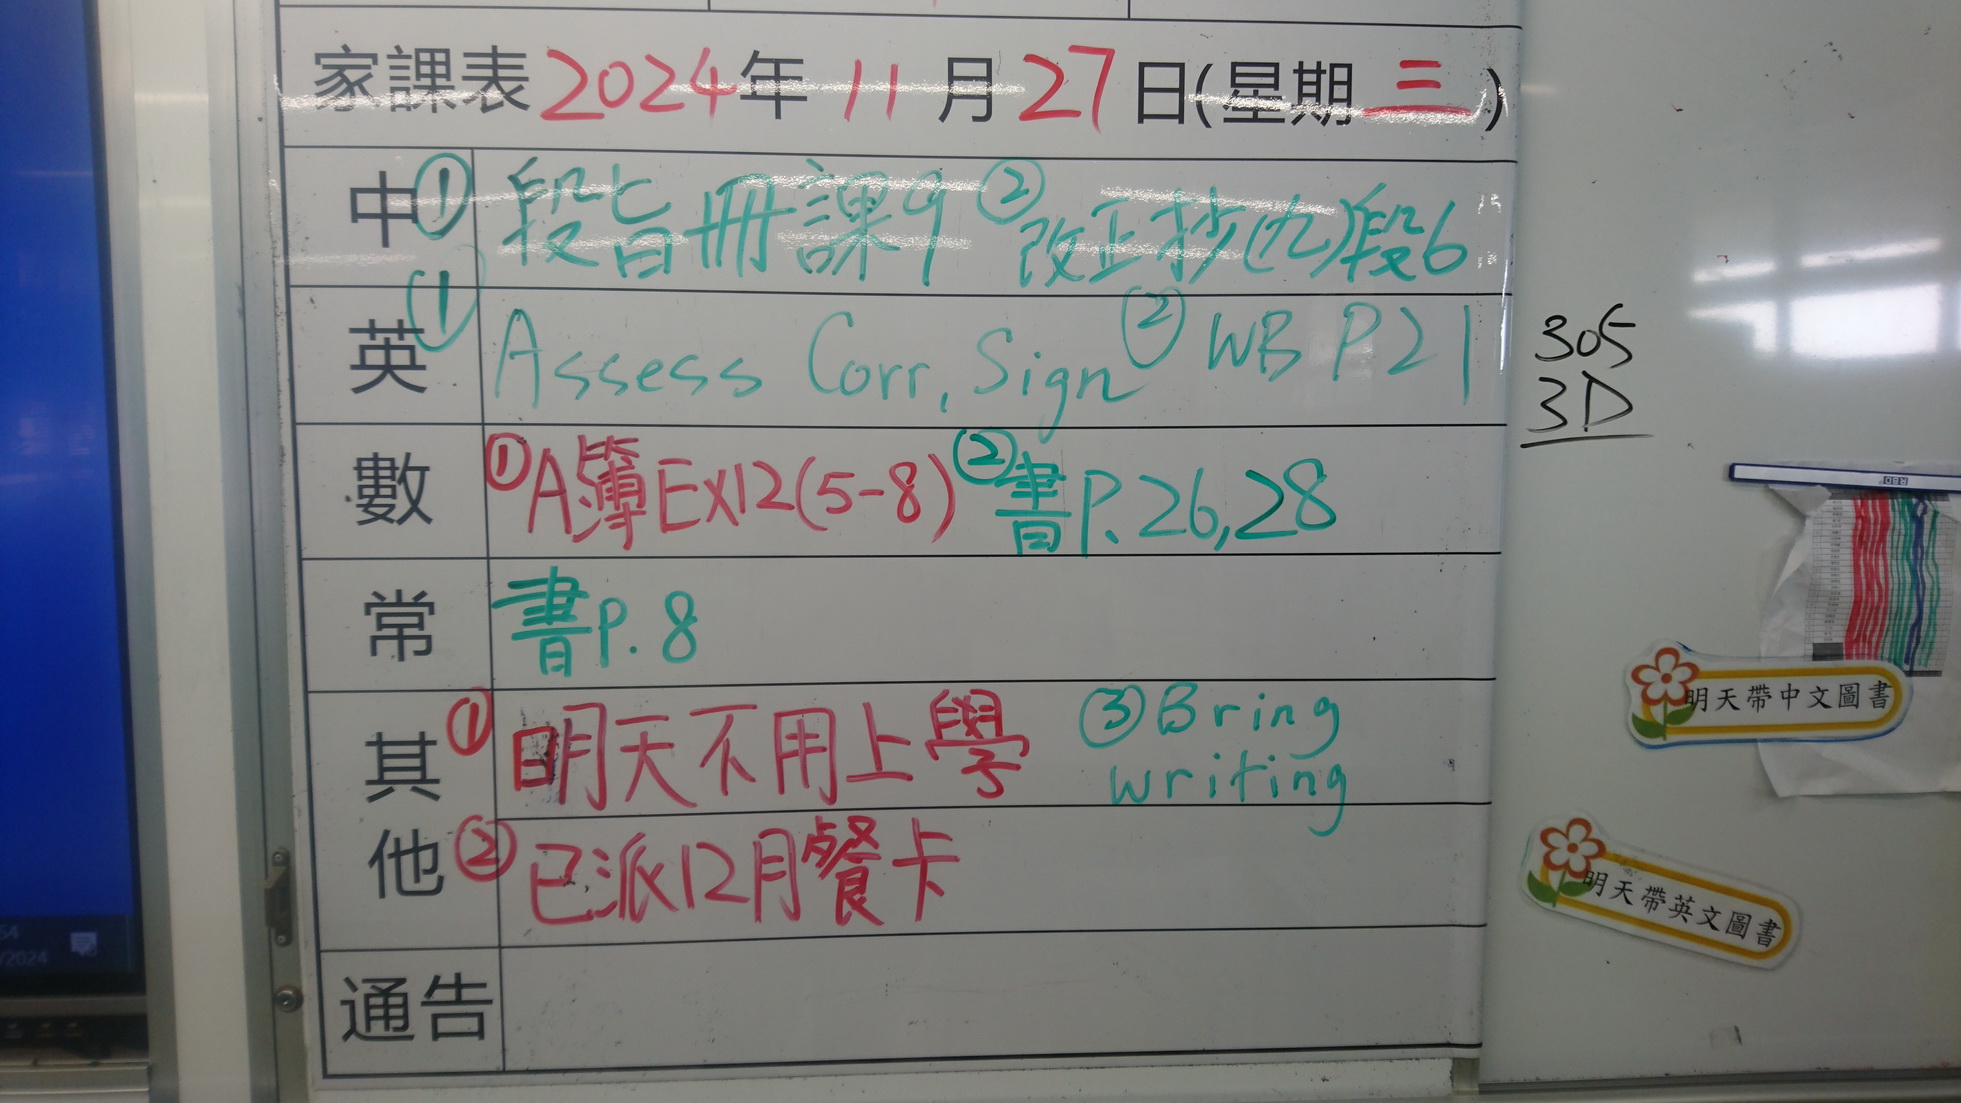 家課表 2024年 11 月 27 日(星期 三 )
中 ① 段旨冊課9 ② 改正抄(九)段6
英 ① Assess Corr, Sign ② WB P21
數 ① A簿Ex12(5-8) ② 書P.26,28
常 書P.8
其他 ① 明天不用上學 ③ Bring writing
② 已派12月餐卡
通告
305
3D
明天帶中文圖書
明天帶英文圖書
/2024